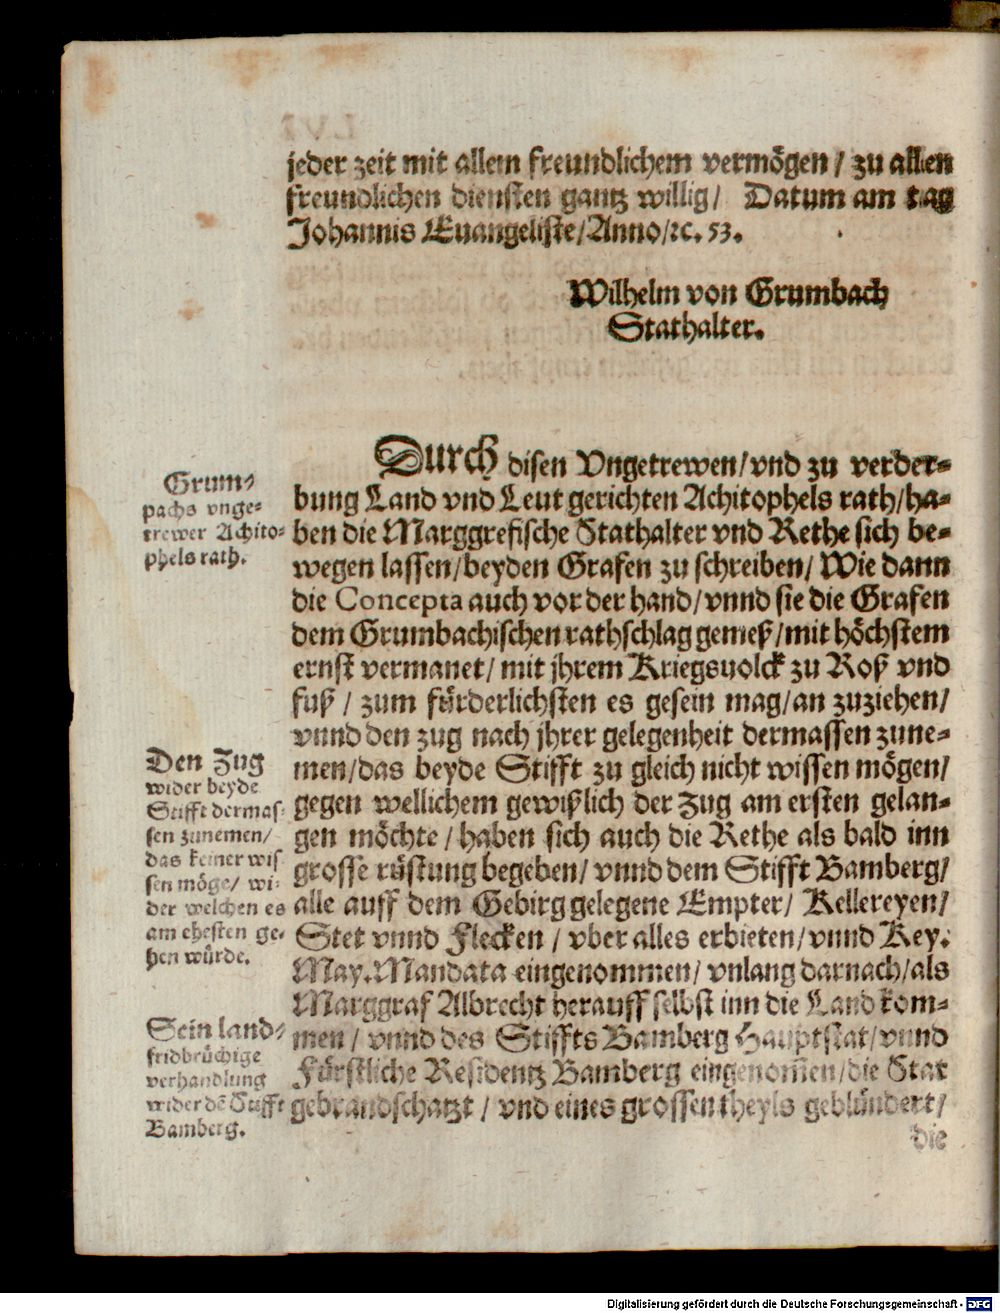 jeder zeit mit allem freundlichem vermögen / zu allen
freundlichen diensten gantz willig / Datum am tag
Johannis Euangeliste / Anno /ꝛc. 53.
Wilhelm von Grumbach
Stathalter.
Grum-
pachs vnge-
trewer Achito-
phels rath.
Durch disen Vngetrewen / vnd zu verder-
bung Land vnd Leut gerichten Achitophels rath / ha-
ben die Marggrefische Stathalter vnd Rethe sich be-
wegen lassen / beyden Grafen zu schreiben / Wie dann
die Concepta auch vor der hand / vnnd sie die Grafen
dem Grumbachischen rathschlag gemeß / mit höchstem
ernst vermanet / mit jhrem Kriegsuolck zu Roß vnd
fuß / zum fürderlichsten es gesein mag / an zuziehen /
vnnd den zug nach jhrer gelegenheit dermassen zune-
men / das beyde Stifft zu gleich nicht wissen mögen /
gegen wellichem gewißlich der Zug am ersten gelan-
gen möchte / haben sich auch die Rethe als bald inn
grosse rüstung begeben / vnnd dem Stifft Bamberg /
alle auff dem Gebirg gelegene Empter / Kellereyen /
Stet vnnd Flecken / vber alles erbieten / vnnd Key.
May. Mandata eingenommen / vnlang darnach / als
Marggraf Albrecht herauff selbst inn die Land kom-
men / vnnd des Stiffts Bamberg Hauptstat / vnnd
Fürstliche Residentz Bamberg eingenom̃en / die Stat
gebrandschatzt / vnd eines grossen theyls geblündert /
die
Den Zug
wider beyde
Stifft dermas-
sen zunemen /
das keiner wis
sen möge / wi-
der welchen es
am ehesten ge-
hen würde.
Sein land-
fridbrüchige
verhandlung
wider dẽ Stifft
Bamberg.
Digitalisierung gefördert durch die Deutsche Forschungsgemeinschaft - DFG